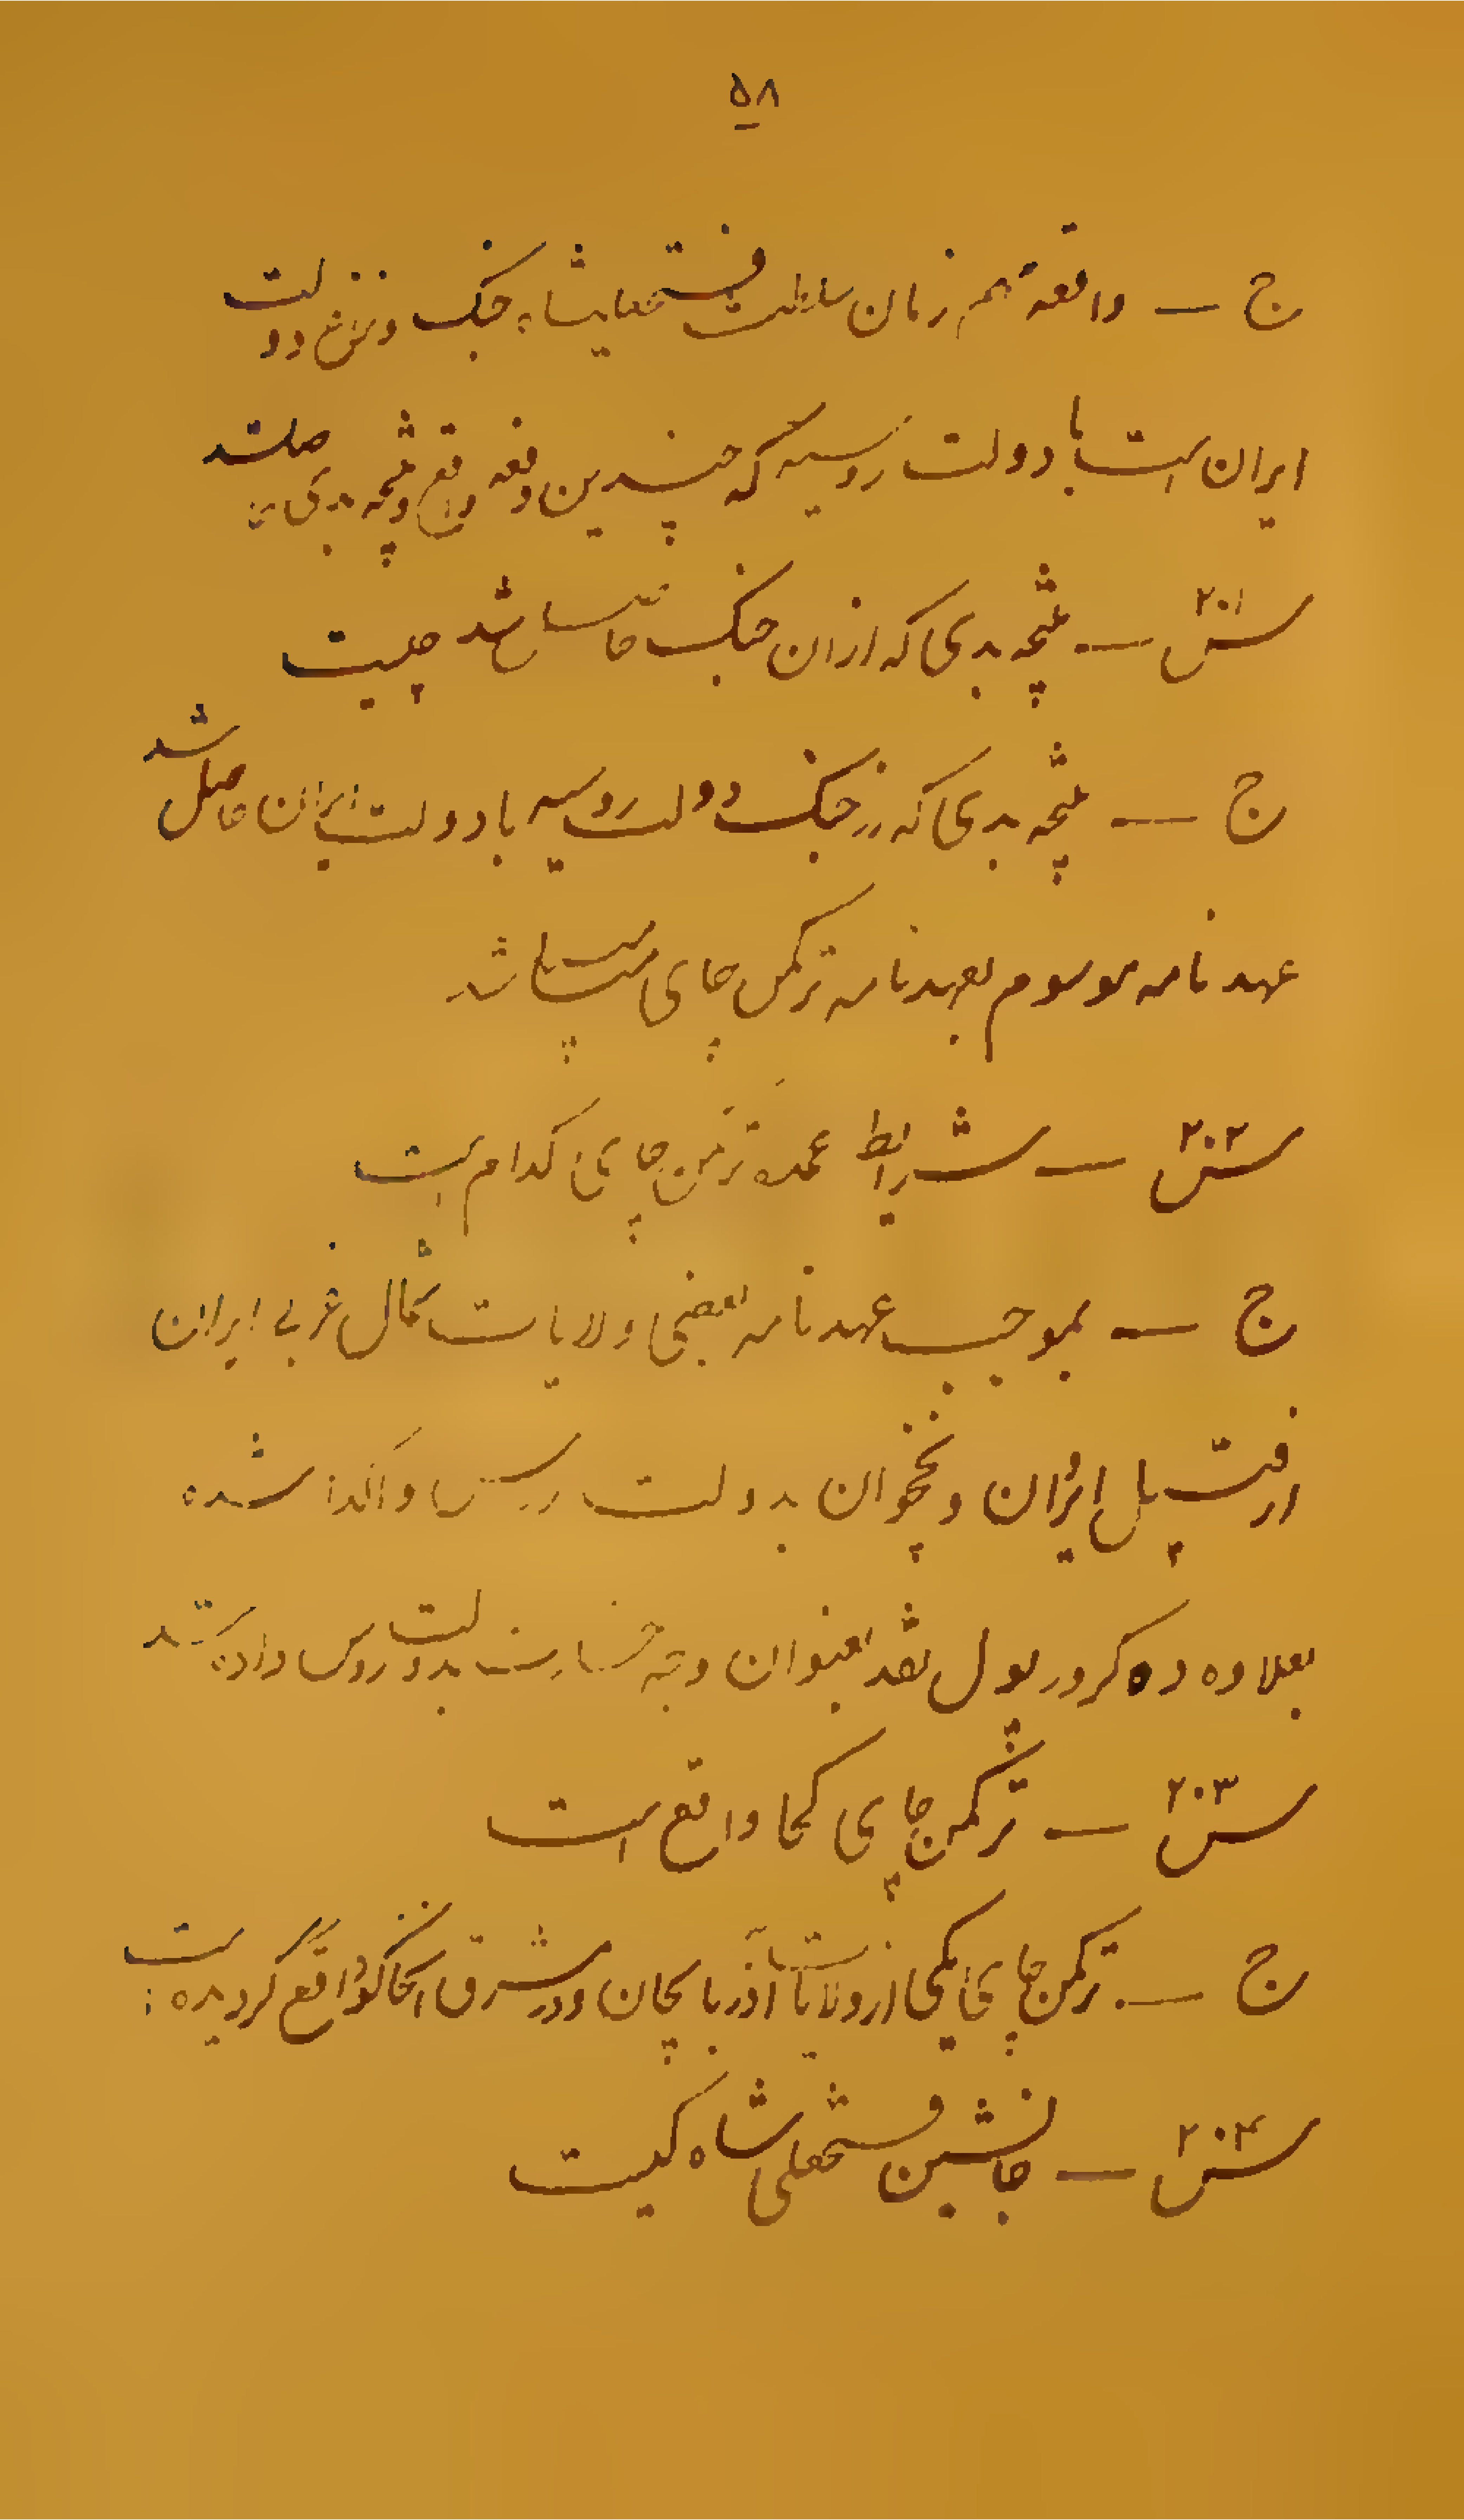 ۵۸
ج — واقعهٔ مهم زمان سلطنت فتحعلیشاه جنک و نزاع دولت
ایران است با دولت روسیه که چندین دفعه واقع و نتیجه بدی حاصل شد
س ۲۰۱ — نتیجه بدی که از ان جنک حاصل شد چیست
ج — نتیجه بدی که در جنک دولت روسیه با دولت ایران حاصل شد
عهد نامه موسوم بعهد نامه ترکمن چای میباشد
س ۲۰۲ — شرایط عمدهٔ ترکمن چای کدام است
ج — بموجب عهد نامه بعضی ولایات شمال غربی ایران
از قبیل ایروان و نخجوان بدولت روس واگذار شده
بعلاوه ده کرور پول نقد بعنوان وجه خسارت بدولت روس داده شد
س ۲۰۳ — ترکمن چای کجا واقع است
ج — ترکمن چای یکی از ولایات آذربایجان و در مشرق واقع گردیده است
س ۲۰۴ — جانشین فتحعلی شاه کیست